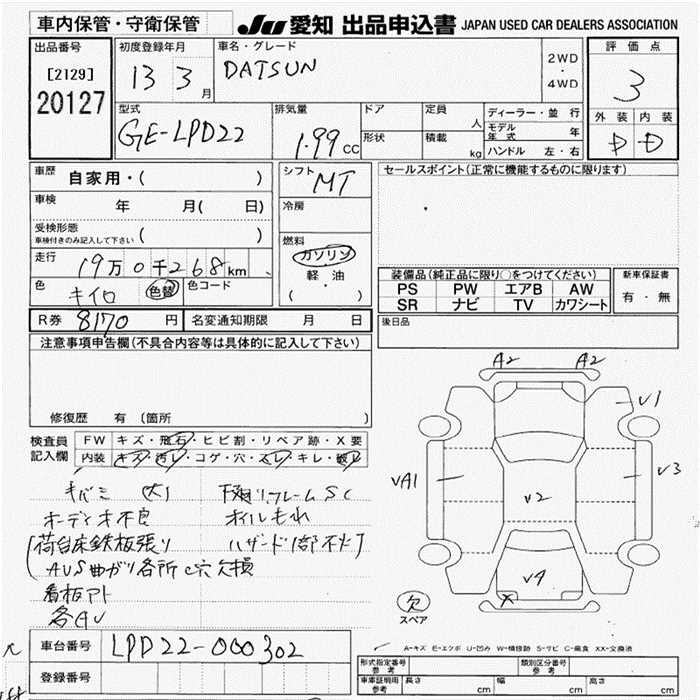 車内保管・守衛保管
JU 愛知 出品申込書 JAPAN USED CAR DEALERS ASSOCIATION
出品番号
[2129]
20127
初度登録年月
13 3 月
車名・グレード
DATSUN
2WD
・
4WD
評価点
3
外装 内装
D D
型式
GE-LPD22
排気量
1.99 CC
ドア
形状
定員 人
積載 kg
ディーラー・並行
モデル年式 年
ハンドル 左・右
車歴 自家用・( )
車検 年 月( 日)
受検形態
車検付きのみ記入して下さい ( )
走行 19万0千268km
色 キイロ 色替 色コード
シフト MT
冷房
燃料
ガソリン
軽・油
( ・ )
セールスポイント(正常に機能するものに限ります)
装備品(純正品に限り○をつけてください)
PS PW エアB AW
SR ナビ TV カワシート
新車保証書
有・無
後日品
R券 8170 円 名変通知期限 月 日
注意事項申告欄(不具合内容等は具体的に記入して下さい)
修復歴 有 (箇所 )
検査員記入欄
FW キズ・飛石・ヒビ割・リペア跡・X要
内装 キズ・汚れ・コゲ・穴・スレ・キレ・破れ
キバミ 大)
下廻り.フレームSC
オーディオ不良
オイルもれ
[荷台床鉄板張り
ハザード1部不灯]
AVS曲がり各所 穴 欠損
看板アト
各AU
A2 A2
V1
VA1
V3
V2
V4
X
欠
スペア
A-キズ E-エクボ U-凹み W-補修跡 S-サビ C-腐食 XX-交換済
車台番号 LPD22-000302
登録番号
形式指定番号 参考
類別区分番号 参考
車庫証明用 参考 長さ cm 幅 cm 高さ cm